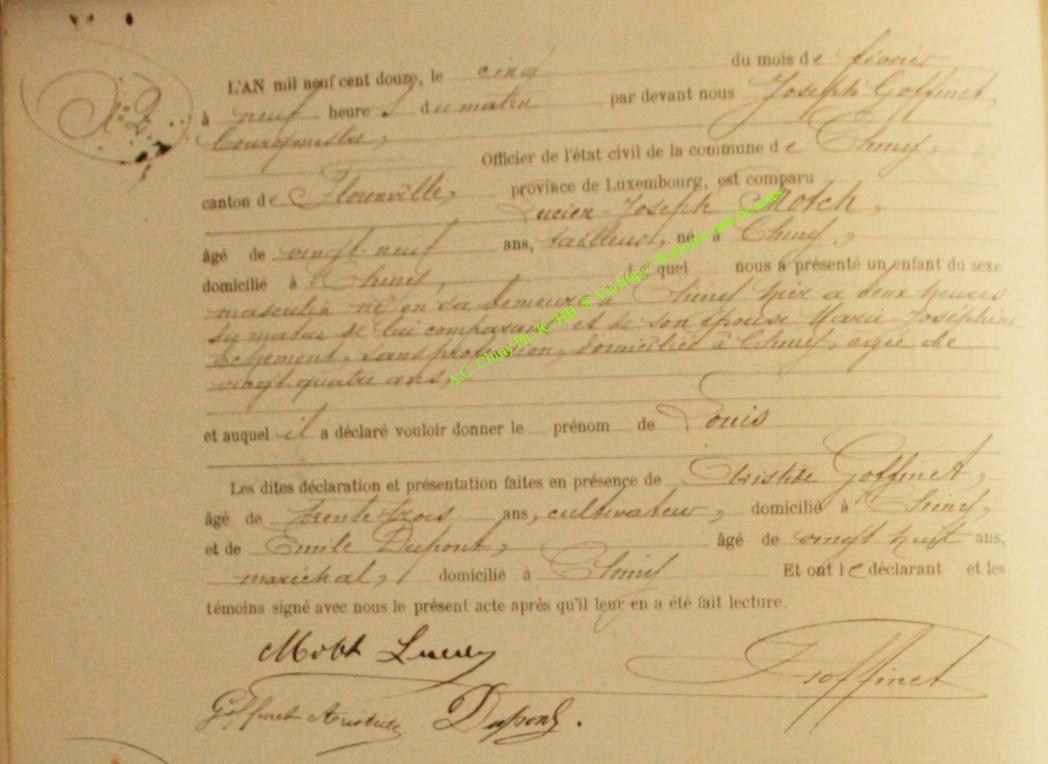 N° 2
L'AN mil neuf cent douze, le cinq du mois de février
à neuf heures du matin par devant nous Joseph Goffinet,
bourgmestre,
Officier de l'état civil de la commune de Chiny,
canton de Florenville, province de Luxembourg, est comparu
Lucien-Joseph Motch,
âgé de vingt-neuf ans, tailleur, né à Chiny,
domicilié à Chiny, quel nous a présenté un enfant du sexe
masculin né en sa demeure à Chiny hier à deux heures
du matin de lui comparant et de son épouse Marie-Joséphine
sans profession, domiciliée à Chiny, agée de
vingt quatre ans,
et auquel il a déclaré vouloir donner le prénom de Louis
Les dites déclaration et présentation faites en présence de Aristide Goffinet,
âgé de trente-trois ans, cultivateur, domicilié à Chiny,
et de Emile Dupont, âgé de vingt huit ans,
maréchal, domicilié à Chiny Et ont le déclarant et les
témoins signé avec nous le présent acte après qu'il leur en a été fait lecture.
Lucien
J Goffinet
Goffinet Aristide Dupont.
A.C. Chiny Ph. JC HB ©